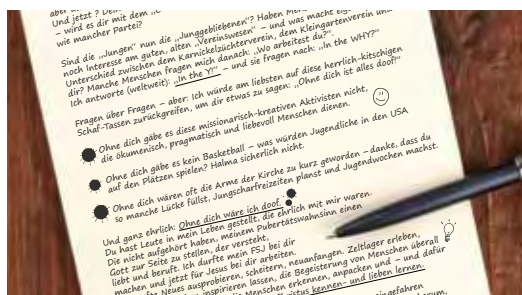 Und jetzt ? Denn
– wird es dir mit dem
wie mancher Partei?
Sind die „Jungen" nun die „Junggebliebenen"? Haben
noch Interesse am guten, alten „Vereinswesen" – und was macht eigentlich
Unterschied zwischen dem Karnickelzüchterverein, dem Kleingartenverein und
dir? Manche Menschen fragen mich danach: „Wo arbeitest du?".
Ich antworte (weltweit): „In the Y!" – und sie fragen nach: „In the WHY?"
Fragen über Fragen – aber: Ich würde am liebsten auf diese herrlich-kitschigen
Schaf-Tassen zurückgreifen, um dir etwas zu sagen: „Ohne dich ist alles doof!"
Ohne dich gäbe es diese missionarisch-kreativen Aktivisten nicht,
die ökumenisch, pragmatisch und liebevoll Menschen dienen.
Ohne dich gäbe es kein Basketball – was würden Jugendliche in den USA
auf den Plätzen spielen? Halma sicherlich nicht.
Ohne dich wären oft die Arme der Kirche zu kurz geworden – danke, dass du
so manche Lücke füllst, Jungscharfreizeiten planst und Jugendwochen machst.
Und ganz ehrlich: Ohne dich wäre ich doof.
Du hast Leute in mein Leben gestellt, die ehrlich mit mir waren.
Die nicht aufgehört haben, meinem Pubertätswahnsinn einen
Gott zur Seite zu stellen, der versteht,
liebt und beruft. Ich durfte mein FSJ bei dir
machen und jetzt für Jesus bei dir arbeiten.
Neues ausprobieren, scheitern, neuanfangen. Zeltlager erleben,
inspirieren lassen, die Begeisterung von Menschen überall
Menschen erkennen, anpacken und – und dafür
kennen- und lieben lernen.
eingefahren